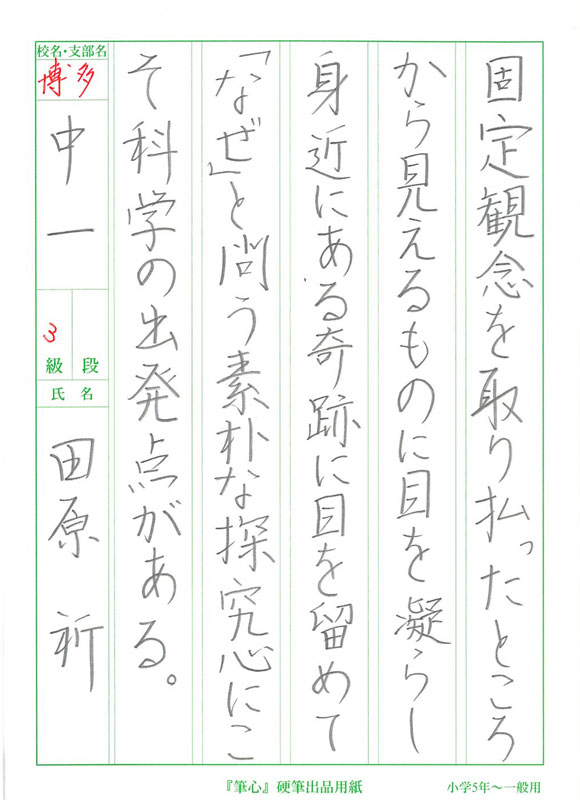 固定観念を取り払ったところ
から見えるものに目を凝らし
身近にある奇跡に目を留めて
「なぜ」と問う素朴な探究心にこ
そ科学の出発点がある。
校名・支部名
博多
中一
3
級
段
氏名
田原 祈
『筆心』硬筆出品用紙
小学5年〜一般用